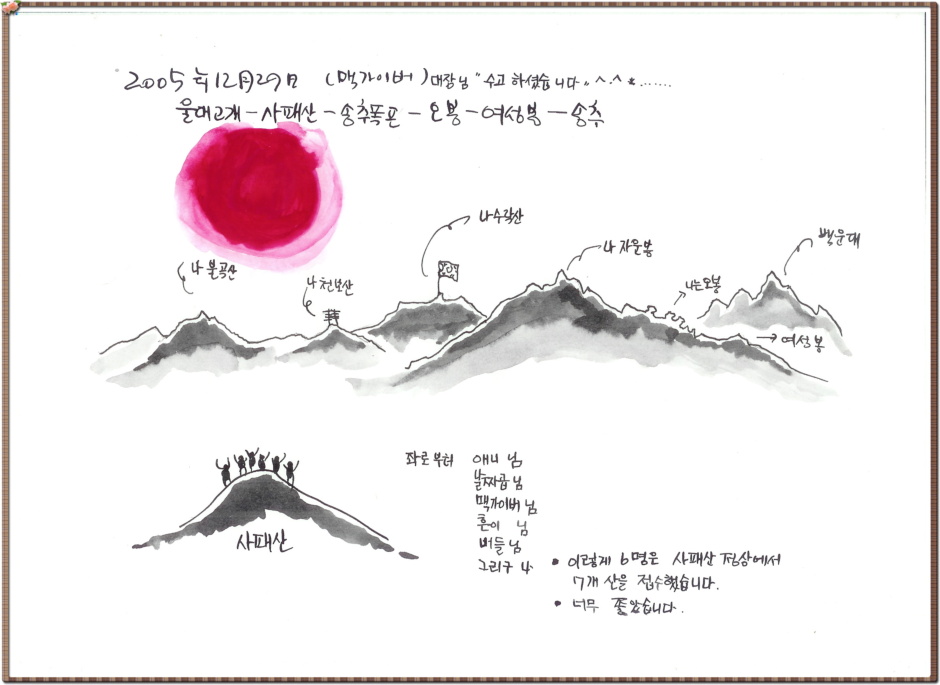 2005년 12月 29日 (맥가이버) 대장님 "수고 하셨습니다" ^.^*.......
울대고개 - 사패산 - 송추폭포 - 오봉 - 여성봉 - 송추
나 수락산
백운대
나 자운봉
나 불곡산
나 천보산
나는 오봉
여성봉
좌로부터 애니 님
날짜곰 님
맥가이버 님
흔이 님
버들 님
그리구 나
사패산
• 이렇게 6명은 사패산 정상에서
7개 산을 접수했습니다.
• 너무 좋았습니다.